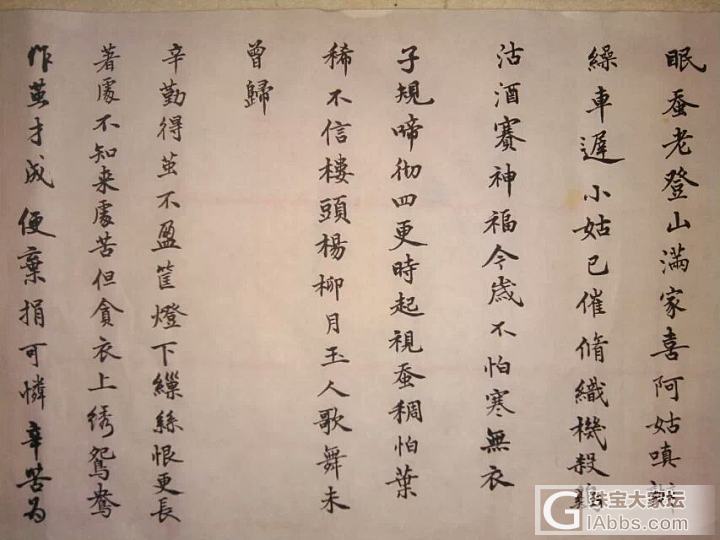 眠蚕老登山满家喜阿姑嗔辦
繰車遲小姑已催脩織機殺鷄
沽酒賽神福今歳不怕寒無衣
子規啼彻四更時起視蚕稠怕葉
稀不信樓頭楊柳月玉人歌舞未
曾歸
辛勤得茧不盈筐燈下繅絲恨更長
著處不知来處苦但貪衣上绣鴛鴦
作茧才成便棄捐可憐辛苦为
珠宝大家坛
GIabbs.com